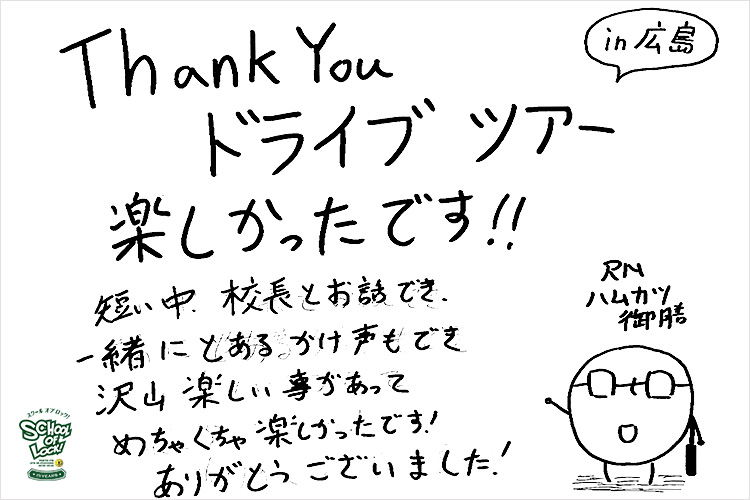 Thank You
in 広島
ドライブ ツアー
楽しかったです!!
短い中、校長とお話でき、
一緒にとあるかけ声もでき
沢山楽しい事があって
めちゃくちゃ楽しかったです!
ありがとうございました!
RN
ハムカツ
御膳
スクールオブロック!
SCHOOL
OF
LOCK!